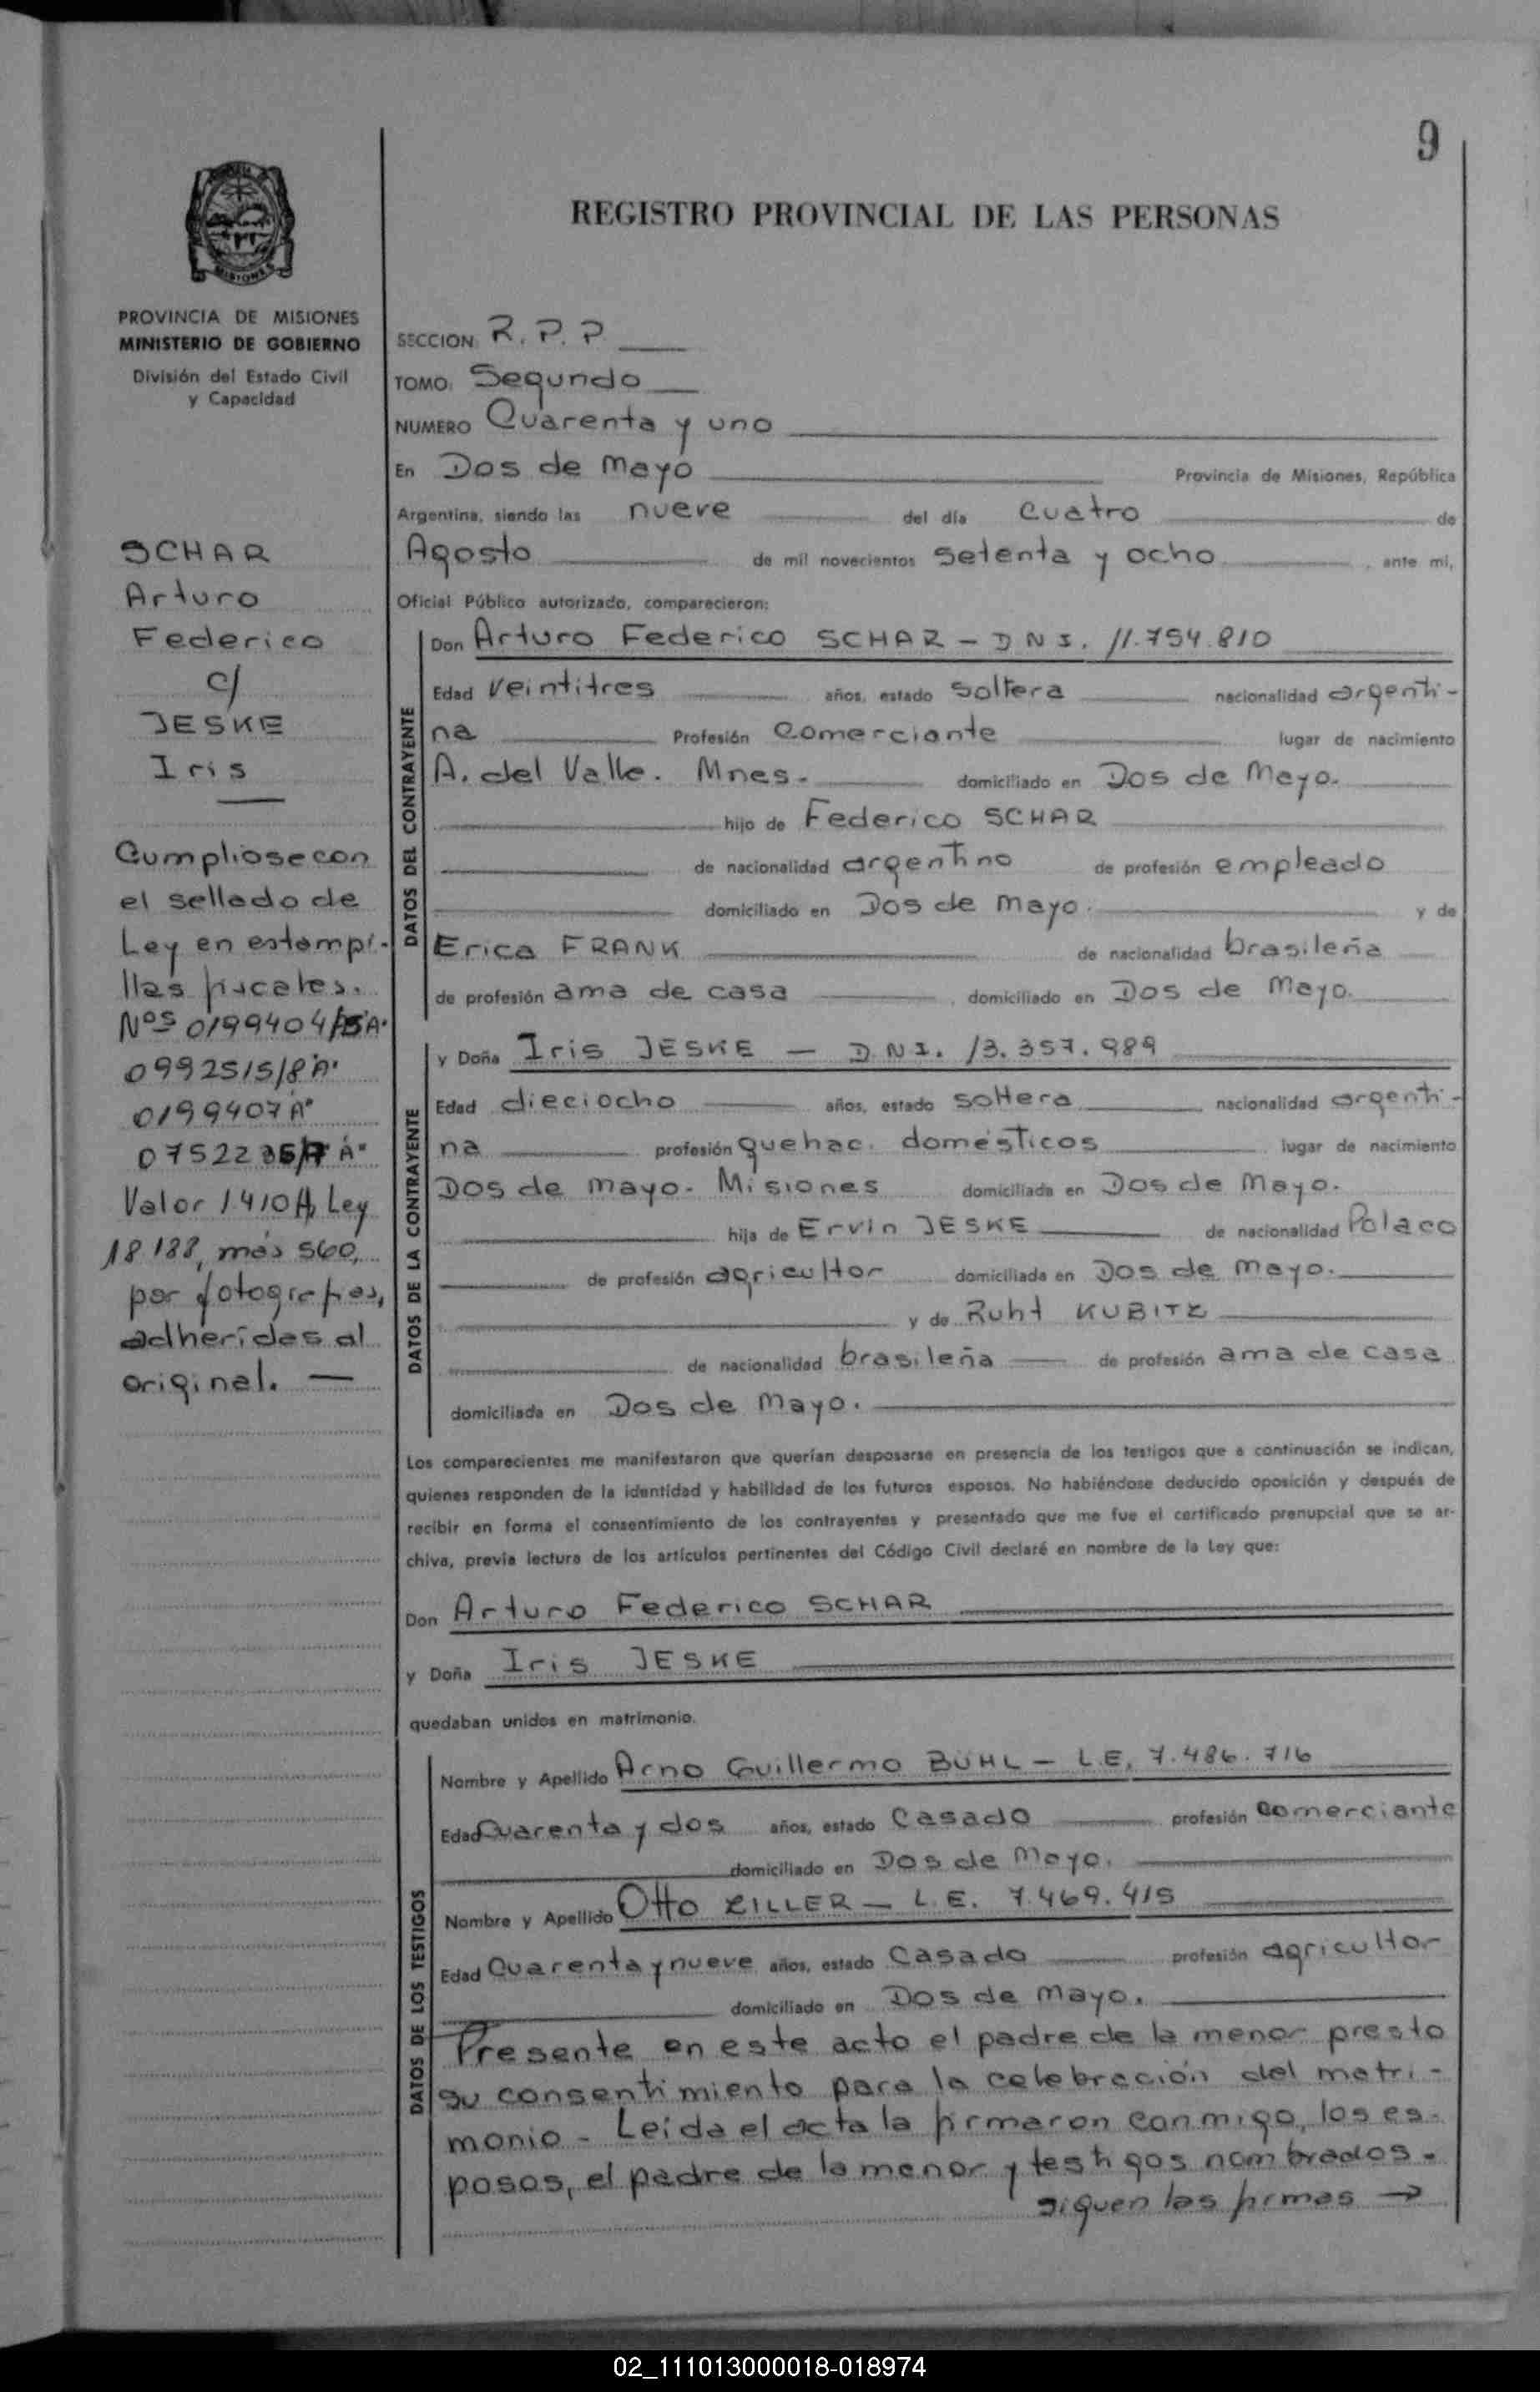 9
REGISTRO PROVINCIAL DE LAS PERSONAS
MISIONES
PROVINCIA DE MISIONES
MINISTERIO DE GOBIERNO
División del Estado Civil
y Capacidad
SCHAR
Arturo
Federico
c/
JESKE
Iris
Cumpliose con
el sellado de
Ley en estampi-
llas fiscales.
Nos 0199404/5 A.
0992515/8 A.
0199407 A.
Valor 1410 Ley
18188, más 560,
por fotografias,
adheridas al
original. —
SECCION: R. P. P.
TOMO: Segundo
NUMERO Quarenta y uno
En Dos de Mayo Provincia de Misiones, República
Argentina, siendo las nueve del día cuatro de
Agosto de mil novecientos setenta y ocho, ante mi,
Oficial Público autorizado, comparecieron:
DATOS DEL CONTRAYENTE
Don Arturo Federico SCHAR - D N I. 11.754.810
Edad veintitres años, estado soltera nacionalidad argenti-
na Profesión Comerciante lugar de nacimiento
A. del Valle. Mnes. domiciliado en Dos de Mayo.
hijo de Federico SCHAR
de nacionalidad argentino de profesión empleado
domiciliado en Dos de Mayo. y de
Erica FRANK de nacionalidad brasileña
de profesión ama de casa, domiciliado en Dos de Mayo.
DATOS DE LA CONTRAYENTE
y Doña Iris JESKE — D.N.I. 13.357.989
Edad dieciocho años, estado soltera nacionalidad argenti-
na profesión quehac. domésticos lugar de nacimiento
Dos de Mayo. Misiones domiciliada en Dos de Mayo.
hija de Ervin JESKE de nacionalidad Polaco
de profesión agricultor domiciliada en Dos de Mayo.
y de Ruht KUBITZ
de nacionalidad brasileña de profesión ama de casa
domiciliada en Dos de Mayo.
Los comparecientes me manifestaron que querían desposarse en presencia de los testigos que a continuación se indican,
quienes responden de la identidad y habilidad de los futuros esposos. No habiéndose deducido oposición y después de
recibir en forma el consentimiento de los contrayentes y presentado que me fue el certificado prenupcial que se ar-
chiva, previa lectura de los artículos pertinentes del Código Civil declaré en nombre de la Ley que:
Don Arturo Federico SCHAR
y Doña Iris JESKE
quedaban unidos en matrimonio.
DATOS DE LOS TESTIGOS
Nombre y Apellido Arno Guillermo BÜHL - L.E. 7.486.716
Edad Cuarenta y dos años, estado Casado profesión Comerciante
domiciliado en Dos de Mayo.
Nombre y Apellido Otto ZILLER - L.E. 7.469.415
Edad Cuarenta y nueve años, estado Casado profesión agricultor
domiciliado en Dos de Mayo.
Presente en este acto el padre de la menor presto
su consentimiento para la celebración del matri-
monio - Leída el acta la firmaron conmigo, los es-
posos, el padre de la menor y testigos nombrados.
siguen las firmas →
02_111013000018-018974